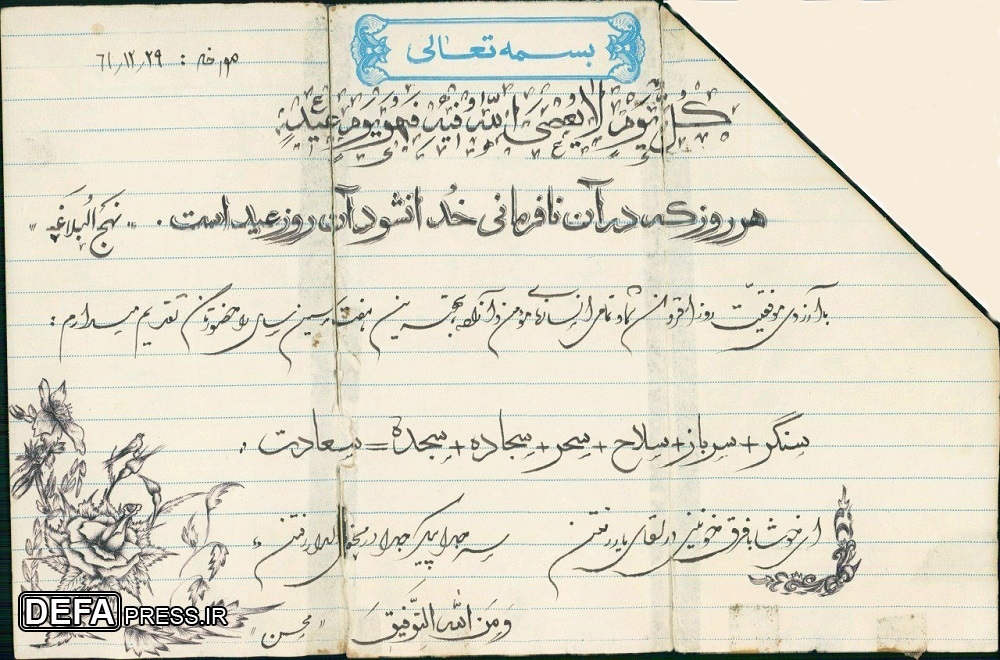 بسمه تعالی
مورخه : ۶۱/۱۲/۲۹
كُلُّ يَوْمٍ لا يُعْصَى اللّهُ فيهِ فَهُوَ يَوْمُ عيدٍ
هر روز که در آن نافرمانی خُدا نشود آن روز عید است . "نهج البلاغه"
با آرزوی موفقیّت روز افزون شما و تمامی انسانهای مؤمن و بهترین هفت سین را حضورتان تقدیم میدارم :
سنگر + سرباز + سلاح + سحر + سجاده + سجده = سعادت .
ای خوشا با فرق خونین در لقای یار رفتن سر جدا پیکر جدا در محفل دلدار رفتن
وَ مِنَ اللّٰه التَّوفیق "محسن"
DEFAPRESS.IR